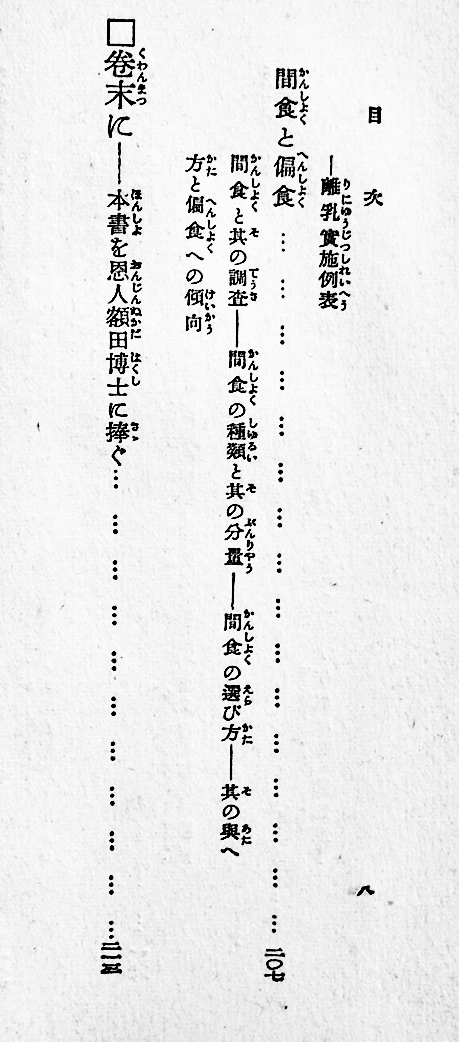 目次
八
―離乳實施例表
間食と偏食………………………………………二〇七
間食と其の調査―間食の種類と其の分量―間食の選び方―其の與へ
方と偏食への傾向
□卷末に―本書を恩人額田博士に捧ぐ………………………………二一三